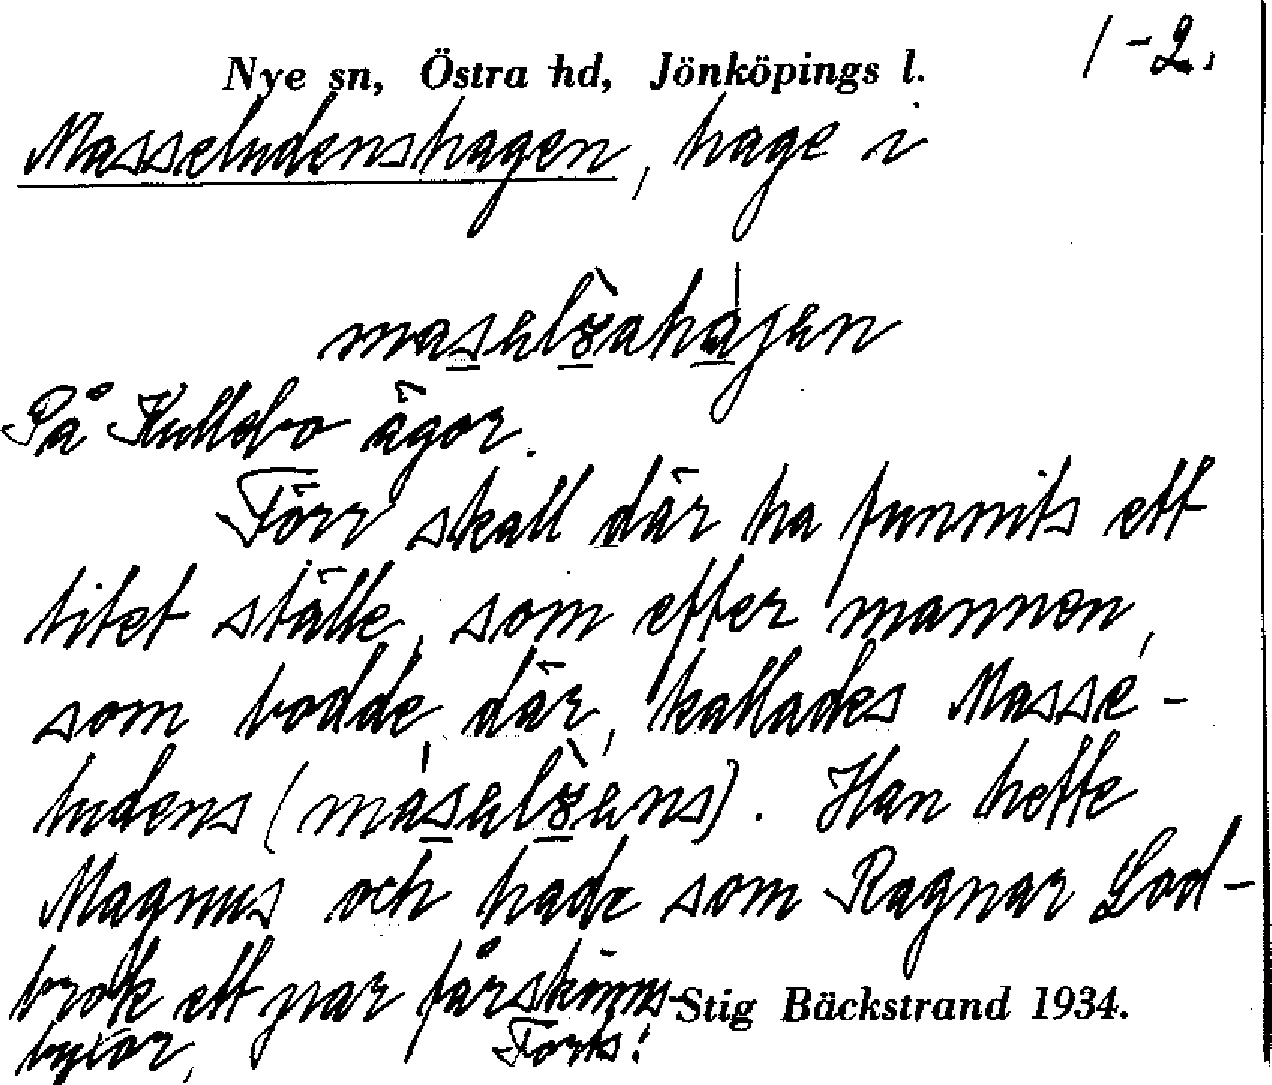 Nye sn, Östra hd, Jönköpings l. 1-2.
Masseludenshagen, hage i
På Kullebo ägor.
Förr skall där ha funnits ett
litet ställe, som efter mannen,
som bodde där, kallades Masse-
ludens ( ). Han hette
Magnus och hade som Ragnar Lod-
brok ett par fårskinns-
byxor,
Forts!
Stig Bäckstrand 1934.